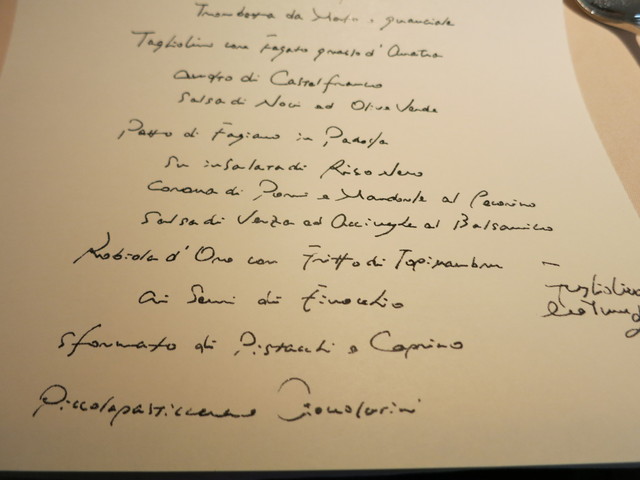 da e guanciale
Tagliolini con Fegato grasso d'Anatra
di Castelfranco
Salsa di Noci ed Olive Verde
Petto di Fagiano in Padella
su insalata di Riso Nero
Corona di Pomi e Mandorle al Pecorino
Salsa di Verza ed Acciughe al Balsamico
Robiola d'Oro con Fritto di Topinambur
ai Semi di Finocchio
Sformato di Pistacchi e Caprino
Piccola pasticceria